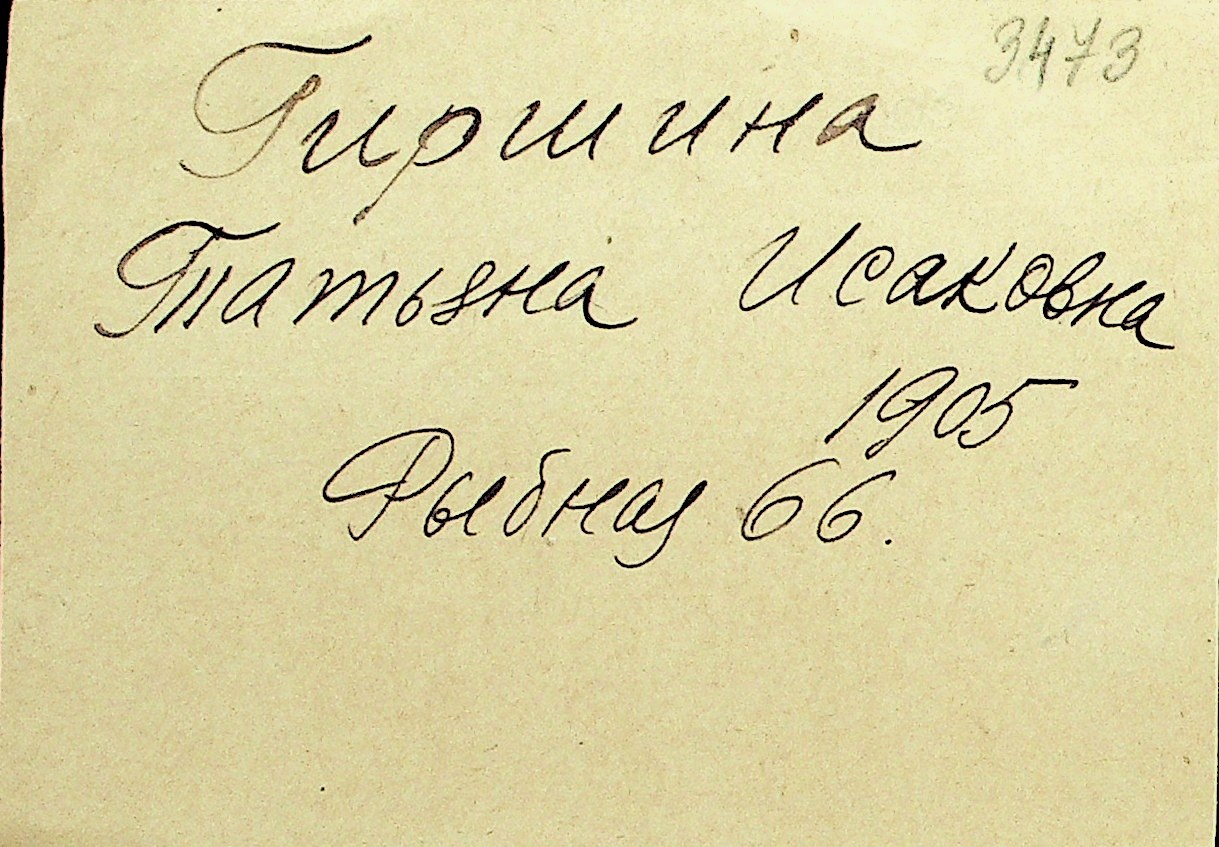 3473
Гиршина
Татьяна Исаковна
1905
Рыбная 66.